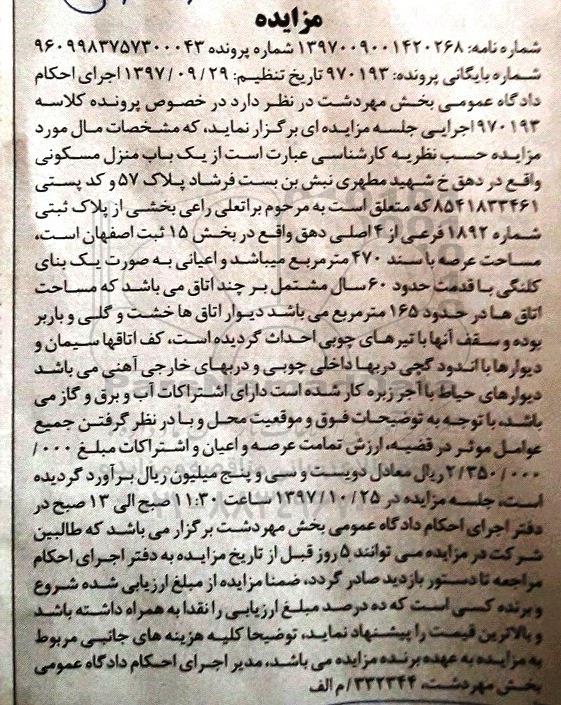 مزایده
شماره نامه: ۱۳۹۷۰۰۹۰۰۱۴۲۰۲۶۸ شماره پرونده ۹۶۰۹۹۸۳۷۵۷۳۰۰۰۴۳
شماره بایگانی پرونده: ۹۷۰۱۹۳ تاریخ تنظیم: ۱۳۹۷/۰۹/۲۹ اجرای احکام
دادگاه عمومی بخش مهردشت در نظر دارد در خصوص پرونده کلاسه
۹۷۰۱۹۳ اجرایی جلسه مزایده ای برگزار نماید، که مشخصات مال مورد
مزایده حسب نظریه کارشناسی عبارت است از یک باب منزل مسکونی
واقع در دهق خ شهید مطهری نبش بن بست فرشاد پلاک ۵۷ و کد پستی
۸۵۴۱۸۳۳۴۶۱ که متعلق است به مرحوم براتعلی راعی بخشی از پلاک ثبتی
شماره ۱۸۹۲ فرعی از ۴ اصلی دهق واقع در بخش ۱۵ ثبت اصفهان است،
مساحت عرصه با سند ۴۷۰ متر مربع میباشد و اعیانی به صورت یک بنای
کلنگی با قدمت حدود ۶۰ سال مشتمل بر چند اتاق می باشد که مساحت
اتاق ها در حدود ۱۶۵ متر مربع می باشد دیوار اتاق ها خشت و گلی و باربر
بوده و سقف آنها با تیرهای چوبی احداث گردیده است، کف اتاقها سیمان و
دیوارها با اندود گچی دربها داخلی چوبی و دربهای خارجی آهنی می باشد
دیوارهای حیاط با آجر زبره کار شده است دارای اشتراکات آب و برق و گاز می
باشد، با توجه به توضیحات فوق و موقعیت محل و با در نظر گرفتن جمیع
عوامل موثر در قضیه، ارزش تمامت عرصه و اعیان و اشتراکات مبلغ ۰۰۰/
۲/۳۵۰/۰۰۰ ریال معادل دویست و سی و پنج میلیون ریال برآورد گردیده
است، جلسه مزایده در ۱۳۹۷/۱۰/۲۵ ساعت ۱۱:۳۰ صبح الی ۱۳ صبح در
دفتر اجرای احکام دادگاه عمومی بخش مهردشت برگزار می باشد که طالبین
شرکت در مزایده می توانند ۵ روز قبل از تاریخ مزایده به دفتر اجرای احکام
مراجعه تا دستور بازدید صادر گردد، ضمنا مزایده از مبلغ ارزیابی شده شروع
و برنده کسی است که ده درصد مبلغ ارزیابی را نقدا به همراه داشته باشد
و بالاترین قیمت را پیشنهاد نماید، توضیحا کلیه هزینه های جانبی مربوط
به مزایده به عهده برنده مزایده می باشد، مدیر اجرای احکام دادگاه عمومی
بخش مهردشت، ۳۳۲۳۴۴/م الف